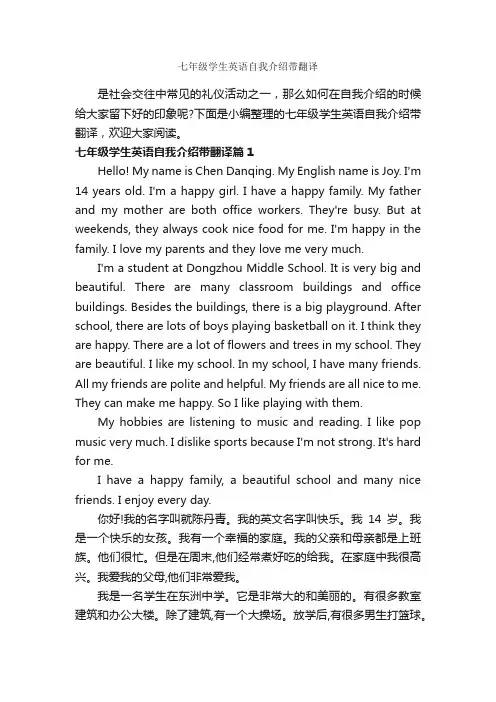 七年级学生英语自我介绍带翻译
是社会交往中常见的礼仪活动之一，那么如何在自我介绍的时候
给大家留下好的印象呢?下面是小编整理的七年级学生英语自我介绍带
翻译，欢迎大家阅读。
七年级学生英语自我介绍带翻译篇1
Hello! My name is Chen Danqing. My English name is Joy. I'm
14 years old. I'm a happy girl. I have a happy family. My father
and my mother are both office workers. They're busy. But at
weekends, they always cook nice food for me. I'm happy in the
family. I love my parents and they love me very much.
I'm a student at Dongzhou Middle School. It is very big and
beautiful. There are many classroom buildings and office
buildings. Besides the buildings, there is a big playground. After
school, there are lots of boys playing basketball on it. I think they
are happy. There are a lot of flowers and trees in my school. They
are beautiful. I like my school. In my school, I have many friends.
All my friends are polite and helpful. My friends are all nice to me.
They can make me happy. So I like playing with them.
My hobbies are listening to music and reading. I like pop
music very much. I dislike sports because I'm not strong. It's hard
for me.
I have a happy family, a beautiful school and many nice
friends. I enjoy every day.
你好!我的名字叫就陈丹青。我的英文名字叫快乐。我 14 岁。我
是一个快乐的女孩。我有一个幸福的家庭。我的父亲和母亲都是上班
族。他们很忙。但是在周末,他们经常煮好吃的给我。在家庭中我很高
兴。我爱我的父母,他们非常爱我。
我是一名学生在东洲中学。它是非常大的和美丽的。有很多教室
建筑和办公大楼。除了建筑,有一个大操场。放学后,有很多男生打篮球。